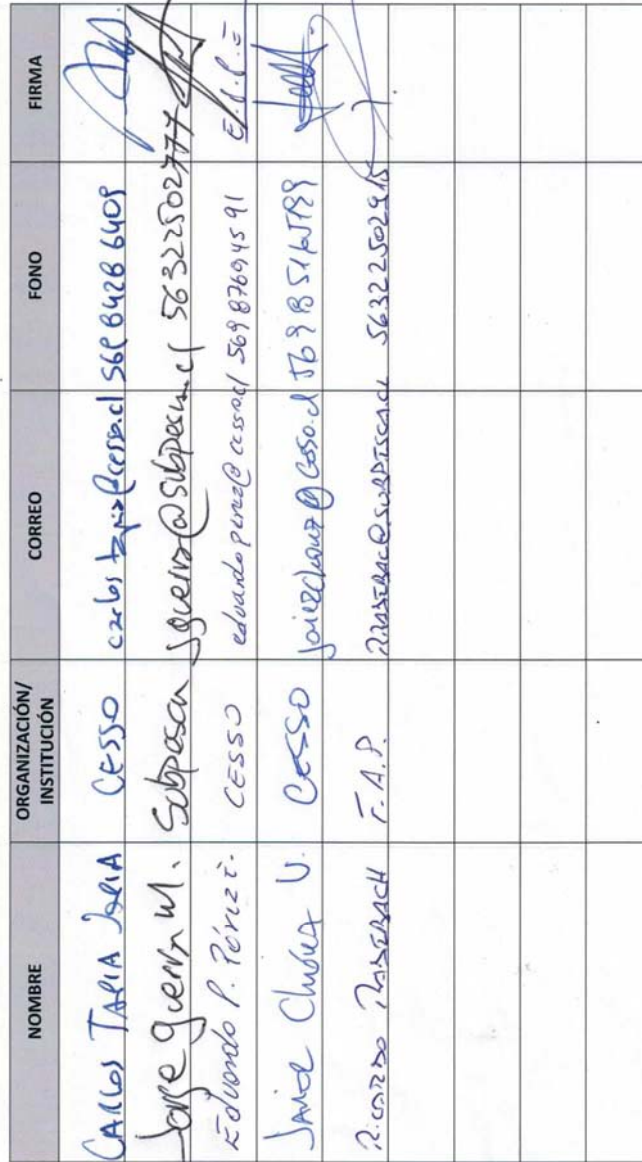 NOMBRE ORGANIZACIÓN/ INSTITUCIÓN CORREO FONO FIRMA
CARLOS TAPIA JAPIA CESSO carlos.tapia@cesso.cl 569 8428 6409
Jorge Guerra M. Subpesca jguerra@subpesca.cl 56322502777
Eduardo P. Pérez E. CESSO eduardo.perez@cesso.cl 56987694591 E.P.P.E
Javier Chávez V. CESSO javierchavez@cesso.cl
RICARDO F.A.P. @SUBPESCA.CL 56322502915